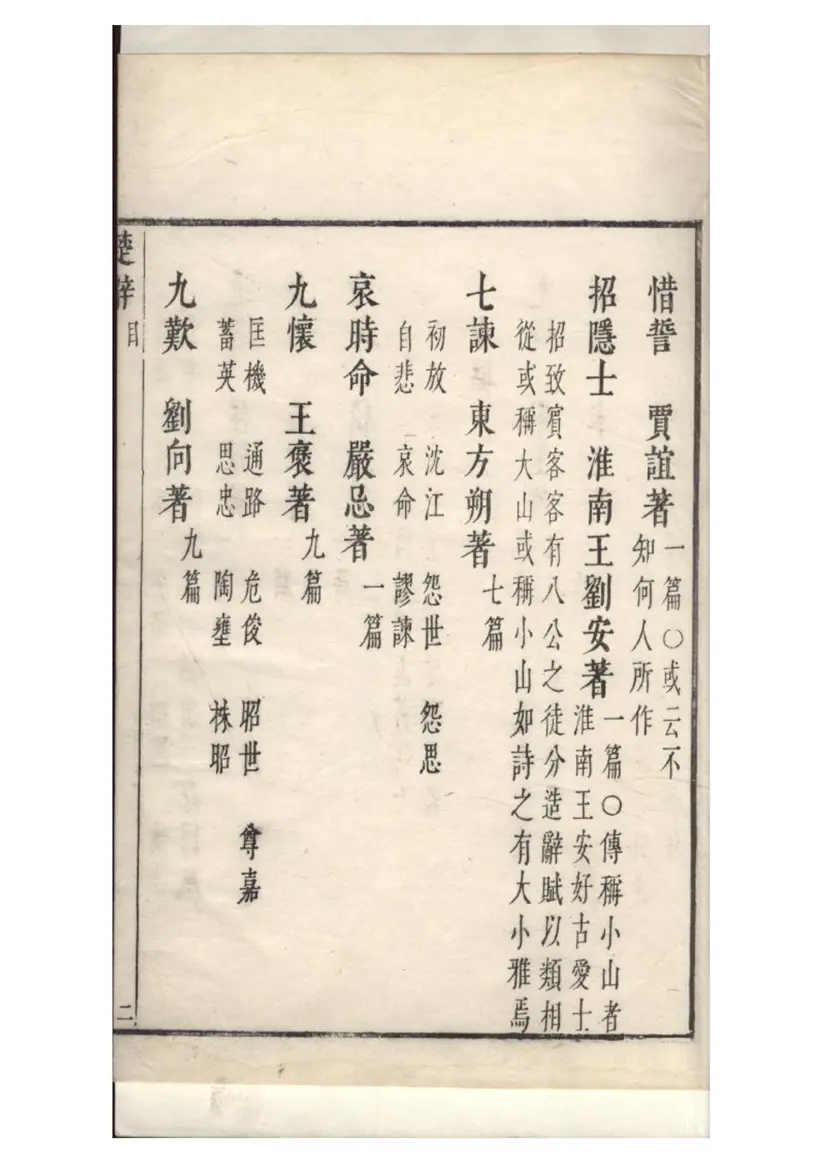 惜誓　賈誼著一篇〇或云不
知何人所作
招隱士　淮南王劉安著一篇〇傳稱小山者
淮南王安好古愛士
招致賓客客有八公之徒分造辭賦以類相
從或稱大山或稱小山如詩之有大小雅焉
七諫　東方朔著七篇
初放　沈江　怨世　怨思
自悲　哀命　謬諫
哀時命　嚴忌著一篇
九懷　王褒著九篇
匡機　通路　危俊　昭世　尊嘉
蓄英　思忠　陶壅　株昭
九歎　劉向著九篇
楚辞　目
二